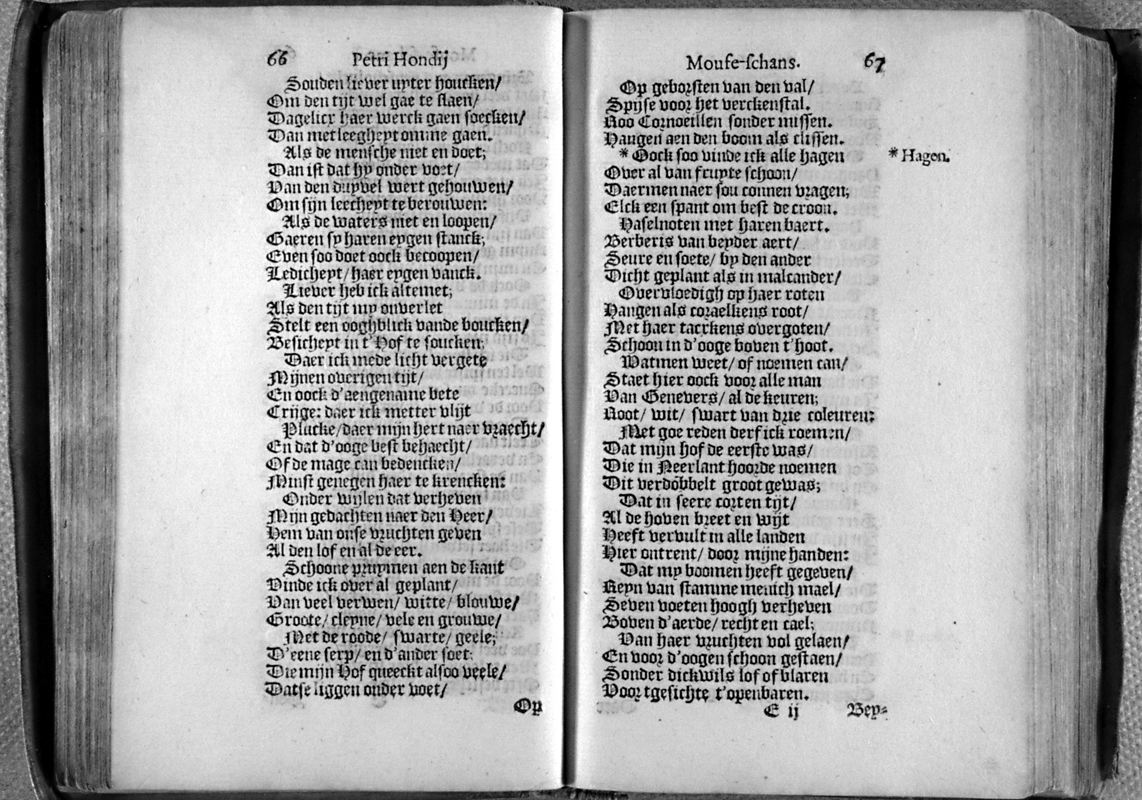 66 Petri Hondij
Souden liever upter houcken/
Om den tijt wel gae te slaen/
Dagelicx haer werck gaen soecken/
Dan met leegheyt omme gaen.
Als de mensche niet en doet;
Dan ist dat hy onder voet/
Van den duyvel wert gehouwen/
Om sijn leecheyt te berouwen:
Als de waters niet en loopen/
Gaeren sy haren eygen stanck;
Even soo doet oock becoopen/
Ledicheyt/ haer eygen vanck.
Liever heb ick altemet;
Als den tijt my onverlet
Stelt een ooghblick vande boucken/
Besicheyt in t'Hof te soucken;
Daer ick mede licht vergete
Mijnen overigen tijt/
En oock d'aengename bete
Crijge: daer ick metter vlijt
Plucke/daer mijn hert naer vraecht/
En dat d'ooge best behaecht/
Of de mage can bedencken/
Minst genegen haer te krencken:
Onder wylen dat verheven
Mijn gedachten naer den Heer/
Hem van onse vruchten geven
Al den lof en al de eer.
Schoone pruymen aen de kant
Vinde ick over al geplant/
Van veel verwen/ witte/ blouwe/
Groote/ cleyne/ vele en grouwe/
Met de roode/ swarte/ geele;
D'eene serp/ en d'ander soet:
Die mijn Hof queeckt alsoo veele/
Datse liggen onder voet/
Op
Mouse-schans. 67
Op geborsten van den val/
Spijse voor het verckenstal.
Roo Cornoeillen sonder nussen.
Hangen aen den boom als clissen.
* Oock soo vinde ick alle hagen
* Hagen.
Over al van fruyte schoon/
Daermen naer sou connen vragen;
Elck een spant om best de croon.
Haselnoten met haren baert.
Berberis van beyder aert/
Seure en soete/ by den ander
Dicht geplant als in malcander/
Overvloedigh op haer roten
Hangen als coraelkens root/
Met haer tackens overgoten/
Schoon in d'ooge boven t'hoot.
Watmen weet/ of noemen can/
Staet hier oock voor alle man
Van Genevers/ al de keuren;
Root/ wit/ swart van drie coleuren:
Met goe reden derf ick roemen/
Dat mijn hof de eerste was/
Die in Neerlant hoorde noemen
Dit verdobbelt groot gewas;
Dat in seere corten tijt/
Al de hoven breet en wijt
Heeft vervult in alle landen
Hier ontrent/ door mijne handen:
Dat my boomen heeft gegeven/
Reyn van stamme menich mael/
Seven voeten hoogh verheven
Boven d'aerde/ recht en cael;
Van haer vruchten vol gelaen/
En voor d'oogen schoon gestaen/
Sonder dickwils lof of blaren
Voor tgesichte t'openbaren.
E ij Bey-